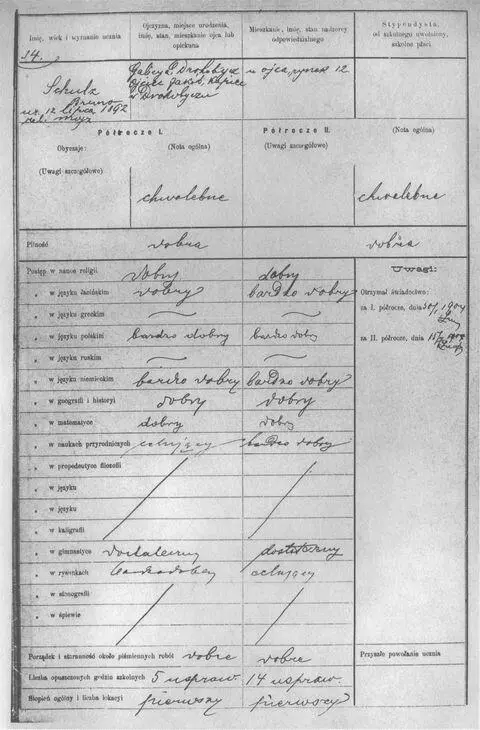 Imię, wiek i wyznanie ucznia
Ojczyzna, miejsce urodzenia, imię, stan, mieszkanie ojca lub opiekuna
Mieszkanie, imię, stan nadzorcy odpowiedzialnego
Stypendysta, od szkolnego uwolniony, szkolnę płaci
14.
Schulz
Bruno
ur. 12 lipca 1892
rel. mojż
Galicya, Drohobycz
ojciec Jakób, kupiec
w Drohobyczu
u ojca, rynek 12
Półrocze I.
Półrocze II.
Obyczaje:
(Nota ogólna)
(Nota ogólna)
(Uwagi szczegółowe)
(Uwagi szczegółowe)
chwalebne
chwalebne
Pilność
dobra
dobra
Postęp w nauce religii dobry dobry
„ w języku łacińskim dobry bardzo dobry
„ w języku greckim
„ w języku polskim bardzo dobry bardzo dobry
„ w języku ruskim
„ w języku niemieckim bardzo dobry bardzo dobry
„ w geografii i historyi dobry dobry
„ w matematyce dobry dobry
„ w naukach przyrodniczych celujący bardzo dobry
„ w propedeutyce filozofii
„ w języku
„ w języku
„ w kaligrafii
„ w gimnastyce dostateczny dostateczny
„ w rysunkach bardzo dobry celujący
„ w stenografii
„ w śpiewie
Uwagi:
Otrzymał świadectwo:
za I. półrocze, dnia 30/1 1904
za II. półrocze, dnia
Porządek i staranność około piśmiennych robót dobre dobre
Liczba opuszczonych godzin szkolnych 5 uspraw. 14 uspraw.
Stopień ogólny i liczba lokacyi pierwszy pierwszy
Przyszłe powołanie ucznia